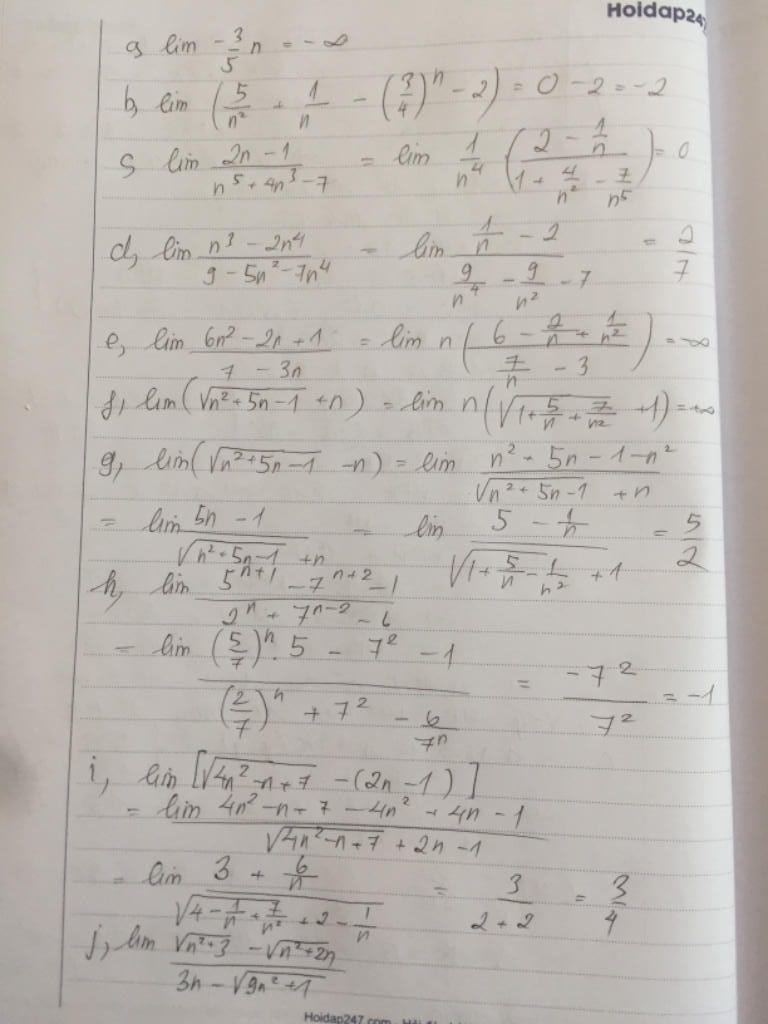 Hoidap247
a, lim -3/5 n = -∞
b, lim (5/n² + 1/n - (3/4)ⁿ - 2) = 0 - 2 = -2
c, lim (2n - 1)/(n⁵ + 4n³ - 7) = lim 1/n⁴ ((2 - 1/n)/(1 + 4/n² - 7/n⁵)) = 0
d, lim (n³ - 2n⁴)/(9 - 5n² - 7n⁴) = lim (1/n - 2)/(9/n⁴ - 9/n² - 7) = 2/7
e, lim (6n² - 2n + 1)/(7 - 3n) = lim n((6 - 2/n + 1/n²)/(7/n - 3)) = -∞
f, lim(√(n² + 5n - 1) + n) = lim n(√(1 + 5/n + 7/n²) + 1) = +∞
g, lim(√(n² + 5n - 1) - n) = lim (n² + 5n - 1 - n²)/(√(n² + 5n - 1) + n)
= lim (5n - 1)/(√(n² + 5n - 1) + n) = lim (5 - 1/n)/(√(1 + 5/n - 1/n²) + 1) = 5/2
h, lim (5ⁿ⁺¹ - 7ⁿ⁺² - 1)/(2ⁿ + 7ⁿ⁻² - 6)
= lim ((5/7)ⁿ . 5 - 7² - 1)/((2/7)ⁿ + 7² - 6/7ⁿ) = -7²/7² = -1
i, lim [√(4n² - n + 7) - (2n - 1)]
= lim (4n² - n + 7 - 4n² + 4n - 1)/(√(4n² - n + 7) + 2n - 1)
= lim (3 + 6/n)/(√(4 - 1/n + 7/n²) + 2 - 1/n) = 3/(2 + 2) = 3/4
j, lim (√(n² + 3) - √(n² + 2n))/(3n - √(9n² + 1))
Hoidap247.com